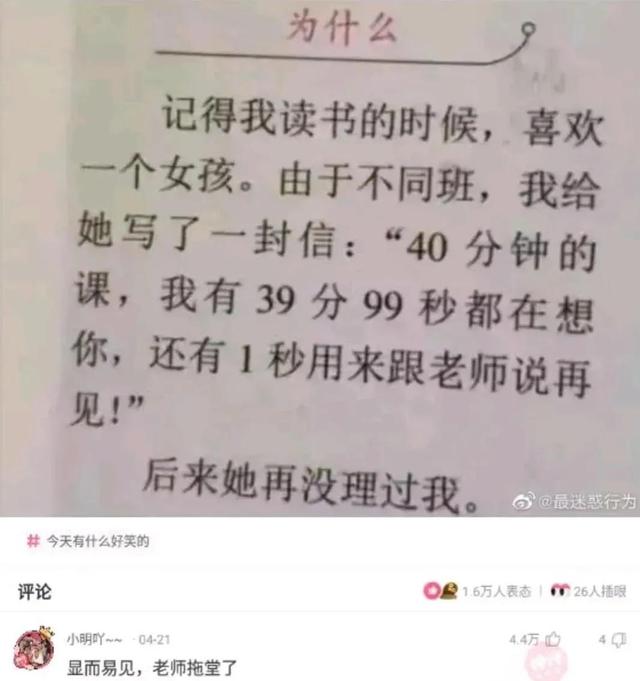 为什么
记得我读书的时候，喜欢
一个女孩。由于不同班，我给
她写了一封信：“40 分钟的
课，我有 39 分 99 秒都在想
你，还有 1 秒用来跟老师说再
见！”
后来她再没理过我。
@最迷惑行为
# 今天有什么好笑的
评论
1.6万人表态 | 26人插眼
小明吖~~ ·04-21
4.4万 4
显而易见，老师拖堂了